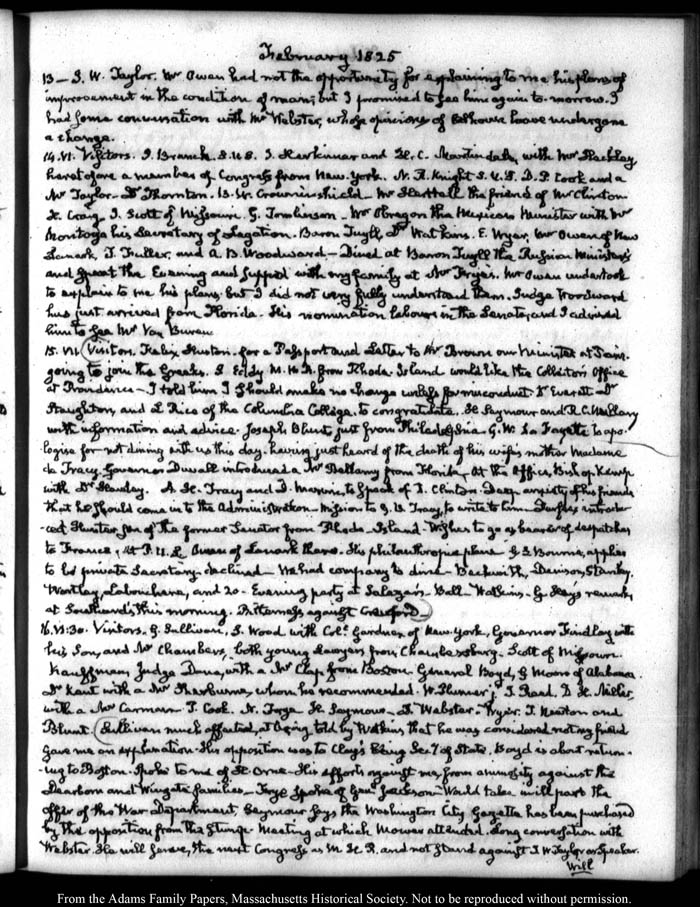 February 1825
13 – J. W. Taylor. Mr Owen had not the opportunity for explaining to me his plans of
improvement in the condition of man; but I promised to see him again to-morrow. I
had some conversation with Mr Webster, whose opinions of Calhoun have undergone
a change.
14. VI. Visitors. J. Branch. S.U.S. J. Herkimer and H. C. Martindale, with Mr Hackley
heretofore a member of Congress from New-York. N. R. Knight S.U.S. D. P. Cook and a
Mr Taylor. Dr Thornton. B. W. Crowninshield – Mr Hartell the friend of Mr Clinton
H. Craig. J. Scott of Missouri. G. Tomlinson – Mr Obregon the Mexican Minister with Mr
Montoya his Secretary of Legation. Baron Tuyll, Dr Watkins. E. Wyer, Mr Owen of New
Lanark, T. Fuller, and A. B. Woodward – Dined at Baron Tuyll the Russian Minister's
and spent the Evening and supped with my family at Mr Frye's. Mr Owen undertook
to explain to me his plans, but I did not very fully understand them. Judge Woodward
has just arrived from Florida. His nomination labours in the Senate, and I advised
him to see Mr Van Buren
15. VII. Visitors. Felix Huston. for a Passport and Letter to Mr Brown our Minister at Paris.
going to join the Greeks. S. Eddy M.H.R. from Rhode-Island would like the Collector's Office
at Providence – I told him I should make no change unless for misconduct. Dr Everett Dr
Staughton, and L. Rice of the Columbia College. to congratulate. H. Seymour and R. C. Mallary
with information and advice. Joseph Blunt, just from Philadelphia. G. W. La Fayette to apo-
logise for not dining with us this day. having just heard of the death of his wife's mother Madame
de Tracy. Governor Duvall introduced a Mr Bellamy from Florida. At the Office, Bishop Kemp
with Dr Hawley. A. H. Tracy and D. Marvin, to speak of D. Clinton. Deep anxiety of his friends
that he should come in to the Administration – Mission to G. B. Tracy, to write to him. introdu-
-ced Hunter, son of the former Senator from Rhode-Island. Wishes to go as bearer of despatches
to France. Owen of Lanark there. His philanthropic plans. G. S. Bourne, applies
to be private Secretary. declined – We had company to dine – Beckwith, Denison, Stanley,
Wortley, Labouchere, and 20 – Evening party at Salazar's. Ball – Watkins – G. Hay's remark
at Southard's this morning. Bitterness against Crawford
16. VI:30. Visitors. G. Sullivan, S. Wood with Col. Gardner of New-York, Governor Findlay with
his Son, and Mr Chambers, both young Lawyers from Chambersburg. Scott of Missouri.
Kauffman, Judge Dana, with a Mr Clap from Boston. General Boyd, G. Moore of Alabama
Dr Kent with a Mr whom he recommended. W. Plumer jr. J. Reed. D. H. Miller,
with a Mr Carman. T. Cook. N. Frye. H. Seymour – D. Webster – Wyer. T. Newton and
Blunt. Sullivan much affected, at being told by Watkins that he was considered not my friend
Gave me an explanation – His opposition was to Clay's being Secy of State. Boyd is about return-
-ing to Boston. Spoke to me of H. Orne – His efforts against me, from animosity against the
Dearborn and Wingate families – Frye spoke of Genl Jackson – Would take in ill part the
offer of the War Department. Seymour says the Washington City Gazette has been purchased
by the opposition from the Meeting at which Mower attended. Long conversation with
Webster. He will serve, the next Congress as M.H.R. and not stand against J. W. Taylor as Speaker.
Will
From the Adams Family Papers, Massachusetts Historical Society. Not to be reproduced without permission.